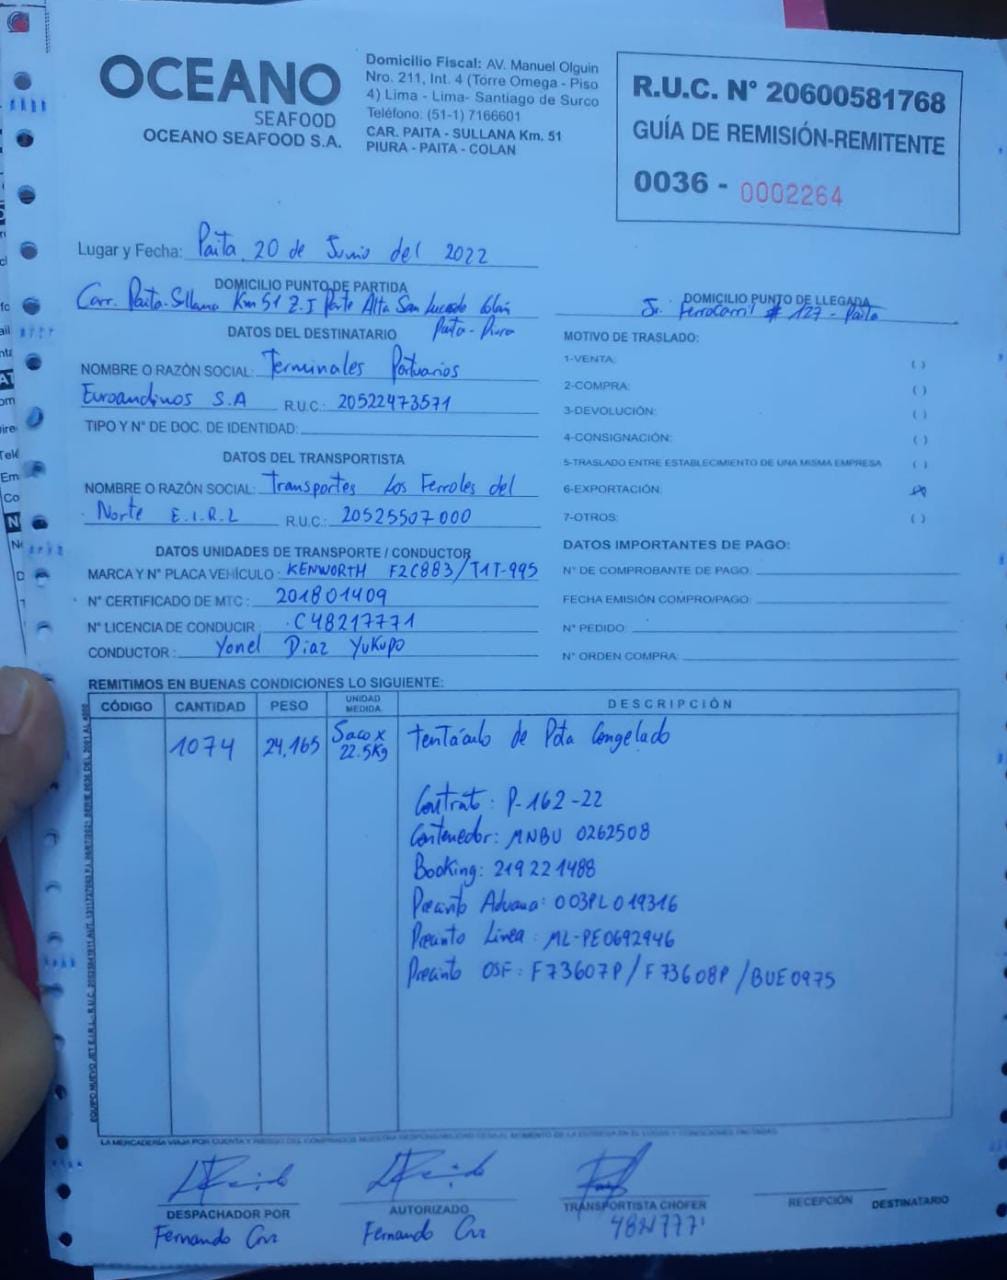 OCEANO
SEAFOOD
OCEANO SEAFOOD S.A.
Domicilio Fiscal: AV. Manuel Olguin
Nro. 211, Int. 4 (Torre Omega - Piso
4) Lima - Lima- Santiago de Surco
Teléfono: (51-1) 7166601
CAR. PAITA - SULLANA Km. 51
PIURA - PAITA - COLAN
R.U.C. N° 20600581768
GUÍA DE REMISIÓN-REMITENTE
0036 - 0002264
Lugar y Fecha: Paita, 20 de Junio del 2022
DOMICILIO PUNTO DE PARTIDA
Carr. Paita-Sullana Km 51 Z.I Parte Alta San Lucas de Colán
Paita-Piura
DOMICILIO PUNTO DE LLEGADA
Jr. Ferrocarril # 127 - Paita
DATOS DEL DESTINATARIO
NOMBRE O RAZÓN SOCIAL: Terminales Portuarios
Euroandinos S.A R.U.C.: 20522473571
TIPO Y N° DE DOC. DE IDENTIDAD:
DATOS DEL TRANSPORTISTA
NOMBRE O RAZÓN SOCIAL: Transportes Los Ferroles del
Norte E.I.R.L R.U.C.: 20525507000
DATOS UNIDADES DE TRANSPORTE / CONDUCTOR
MARCA Y N° PLACA VEHÍCULO: KENWORTH F2C883/T1T-995
N° CERTIFICADO DE MTC: 201801409
N° LICENCIA DE CONDUCIR: C48217771
CONDUCTOR: Yonel Diaz Yukupo
MOTIVO DE TRASLADO:
1-VENTA: ( )
2-COMPRA: ( )
3-DEVOLUCIÓN: ( )
4-CONSIGNACIÓN: ( )
5-TRASLADO ENTRE ESTABLECIMIENTO DE UNA MISMA EMPRESA ( )
6-EXPORTACIÓN: (X)
7-OTROS: ( )
DATOS IMPORTANTES DE PAGO:
N° DE COMPROBANTE DE PAGO:
FECHA EMISIÓN COMPRO/PAGO:
N° PEDIDO:
N° ORDEN COMPRA:
REMITIMOS EN BUENAS CONDICIONES LO SIGUIENTE:
CÓDIGO CANTIDAD PESO UNIDAD MEDIDA DESCRIPCIÓN
1074 24,165 Saco x 22.5Kg tentáculo de Pota Congelado
Contrato: P-162-22
Contenedor: MNBU 0262508
Booking: 219221488
Precinto Aduana: 003PL019316
Precinto Linea: ML-PE0692946
Precinto OSF: F73607P / F73608P / BUE0975
DESPACHADOR POR
Fernando Cruz
AUTORIZADO
Fernando Cruz
TRANSPORTISTA CHOFER
RECEPCIÓN DESTINATARIO